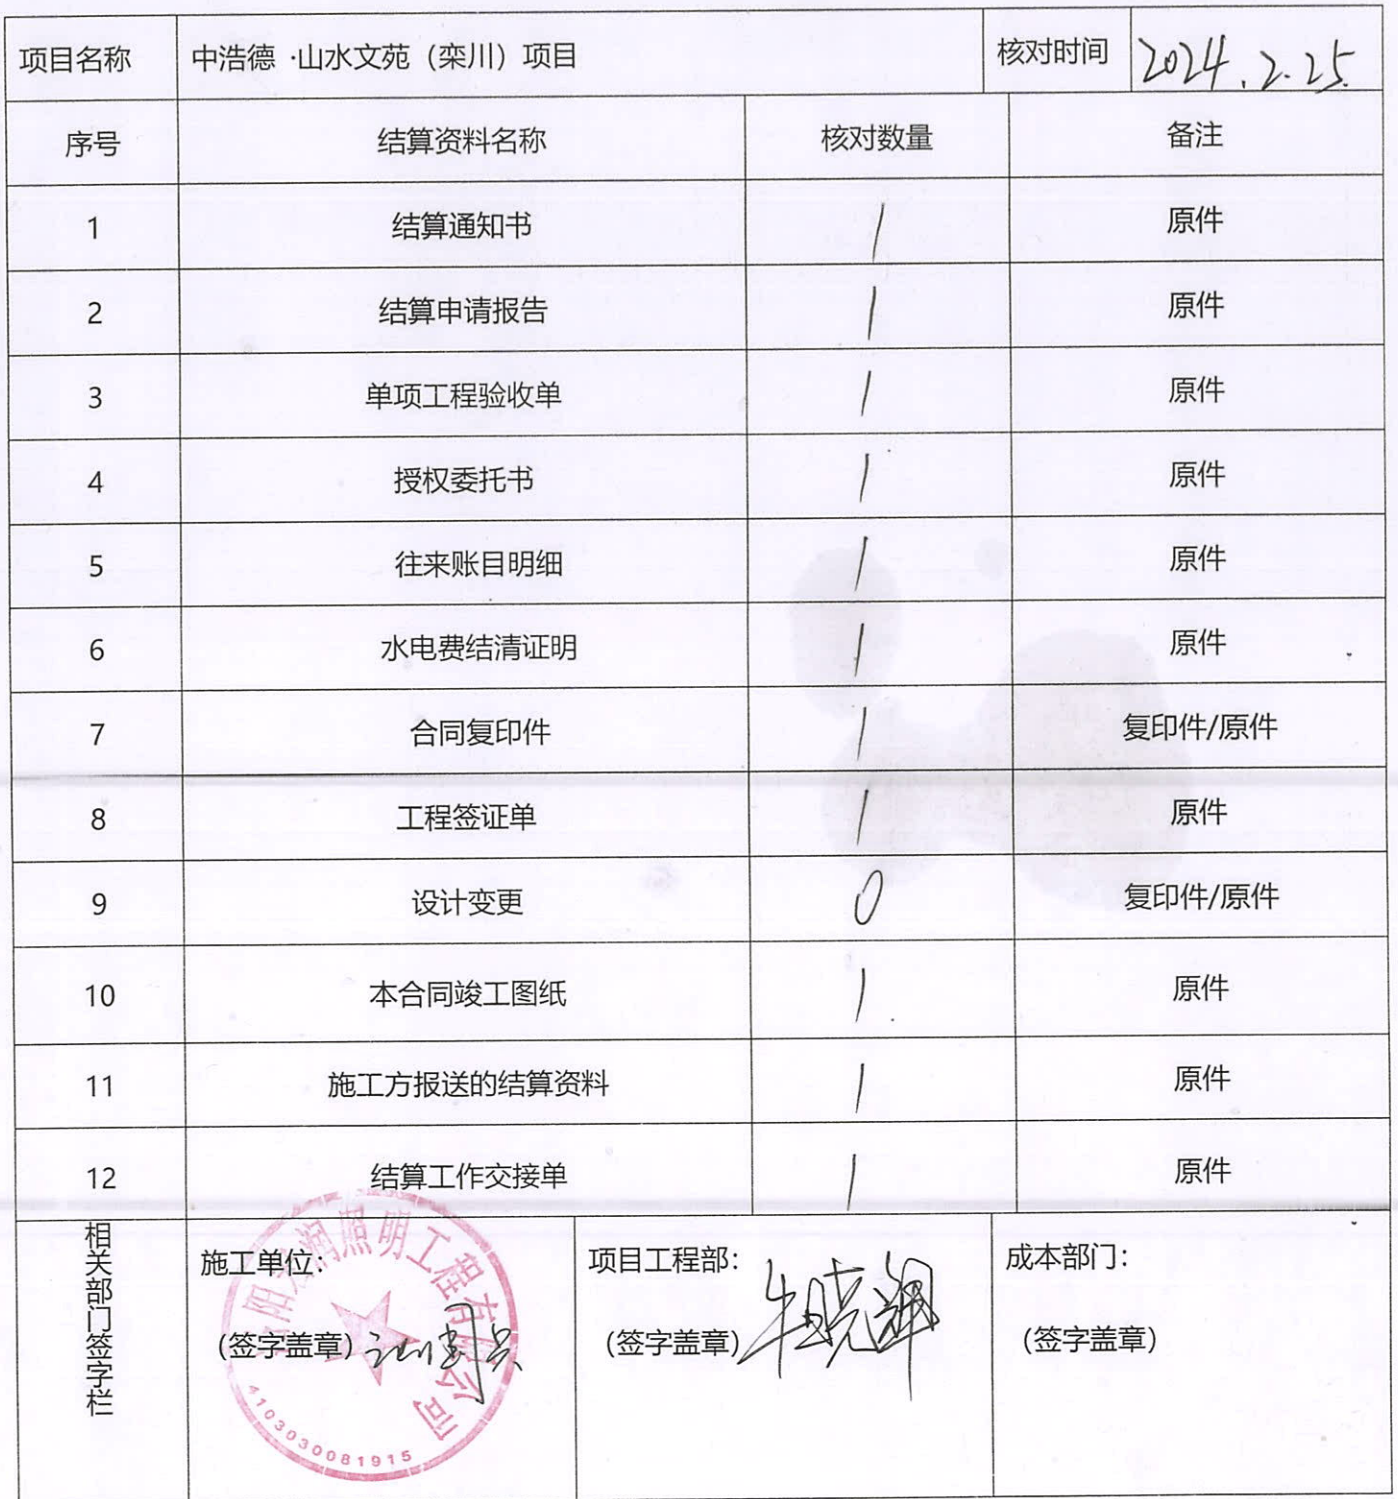 项目名称 中浩德 ·山水文苑（栾川）项目 核对时间 2024.2.25.
序号 结算资料名称 核对数量 备注
1 结算通知书 1 原件
2 结算申请报告 1 原件
3 单项工程验收单 1 原件
4 授权委托书 1 原件
5 往来账目明细 1 原件
6 水电费结清证明 1 原件
7 合同复印件 1 复印件/原件
8 工程签证单 1 原件
9 设计变更 0 复印件/原件
10 本合同竣工图纸 1 原件
11 施工方报送的结算资料 1 原件
12 结算工作交接单 1 原件
相关部门签字栏
施工单位： 项目工程部： 成本部门：
（签字盖章） （签字盖章） 牛晓翔 （签字盖章）
阳 润照明工程有限公司
4103030081915